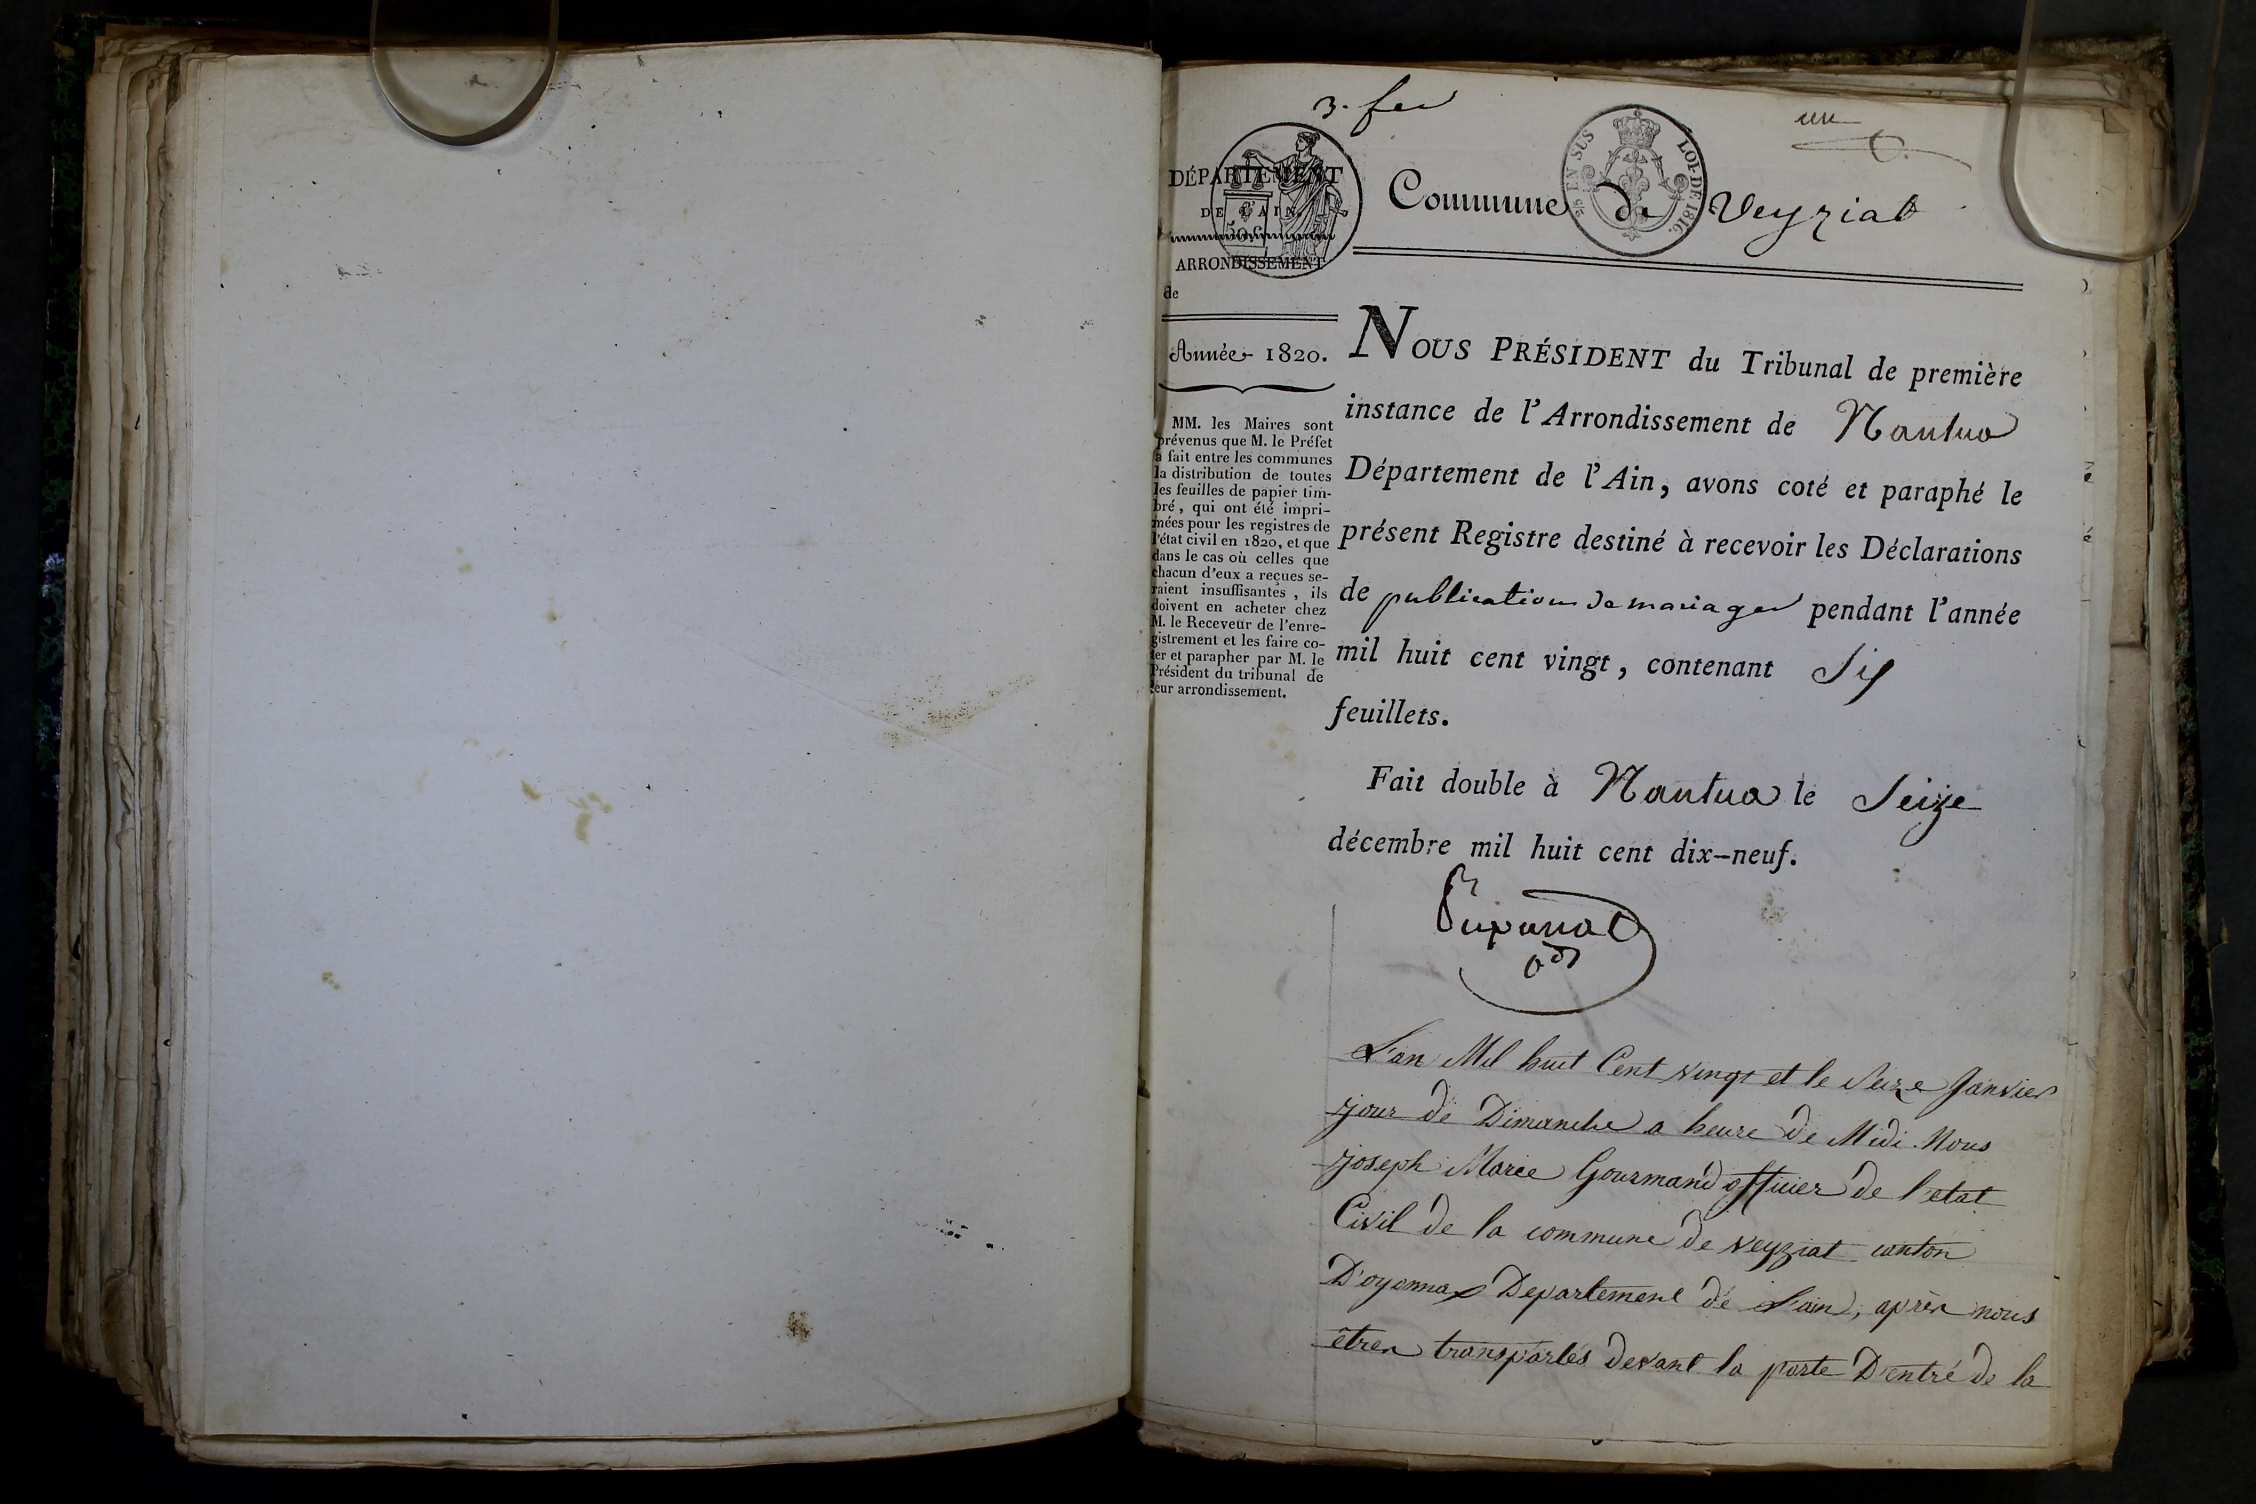 3. feu
un
DÉPARTEMENT
DE L'AIN.
50 c
ARRONDISSEMENT
de
EN SUS
LOI DE 1816.
Commune de Veyziat
Année 1820.
MM. les Maires sont
prévenus que M. le Préfet
a fait entre les communes
la distribution de toutes
les feuilles de papier tim-
bré, qui ont été impri-
mées pour les registres de
l'état civil en 1820, et que
dans le cas où celles que
chacun d'eux a reçues se-
raient insuffisantes, ils
doivent en acheter chez
M. le Receveur de l'enre-
gistrement et les faire co-
ter et parapher par M. le
Président du tribunal de
leur arrondissement.
NOUS PRÉSIDENT du Tribunal de première
instance de l'Arrondissement de Nantua
Département de l'Ain, avons coté et paraphé le
présent Registre destiné à recevoir les Déclarations
de publication de mariages pendant l'année
mil huit cent vingt, contenant Six
feuillets.
Fait double à Nantua le Seize
décembre mil huit cent dix-neuf.
L'an Mil huit Cent vingt et le Seize Janvier
jour de Dimanche a heure de Midi Nous
joseph Marie Gourmand officier de l'etat
Civil de la commune de veyziat canton
D'oyonnax Departement de L'ain, après nous
êtres transportés devant la porte D'entré de la